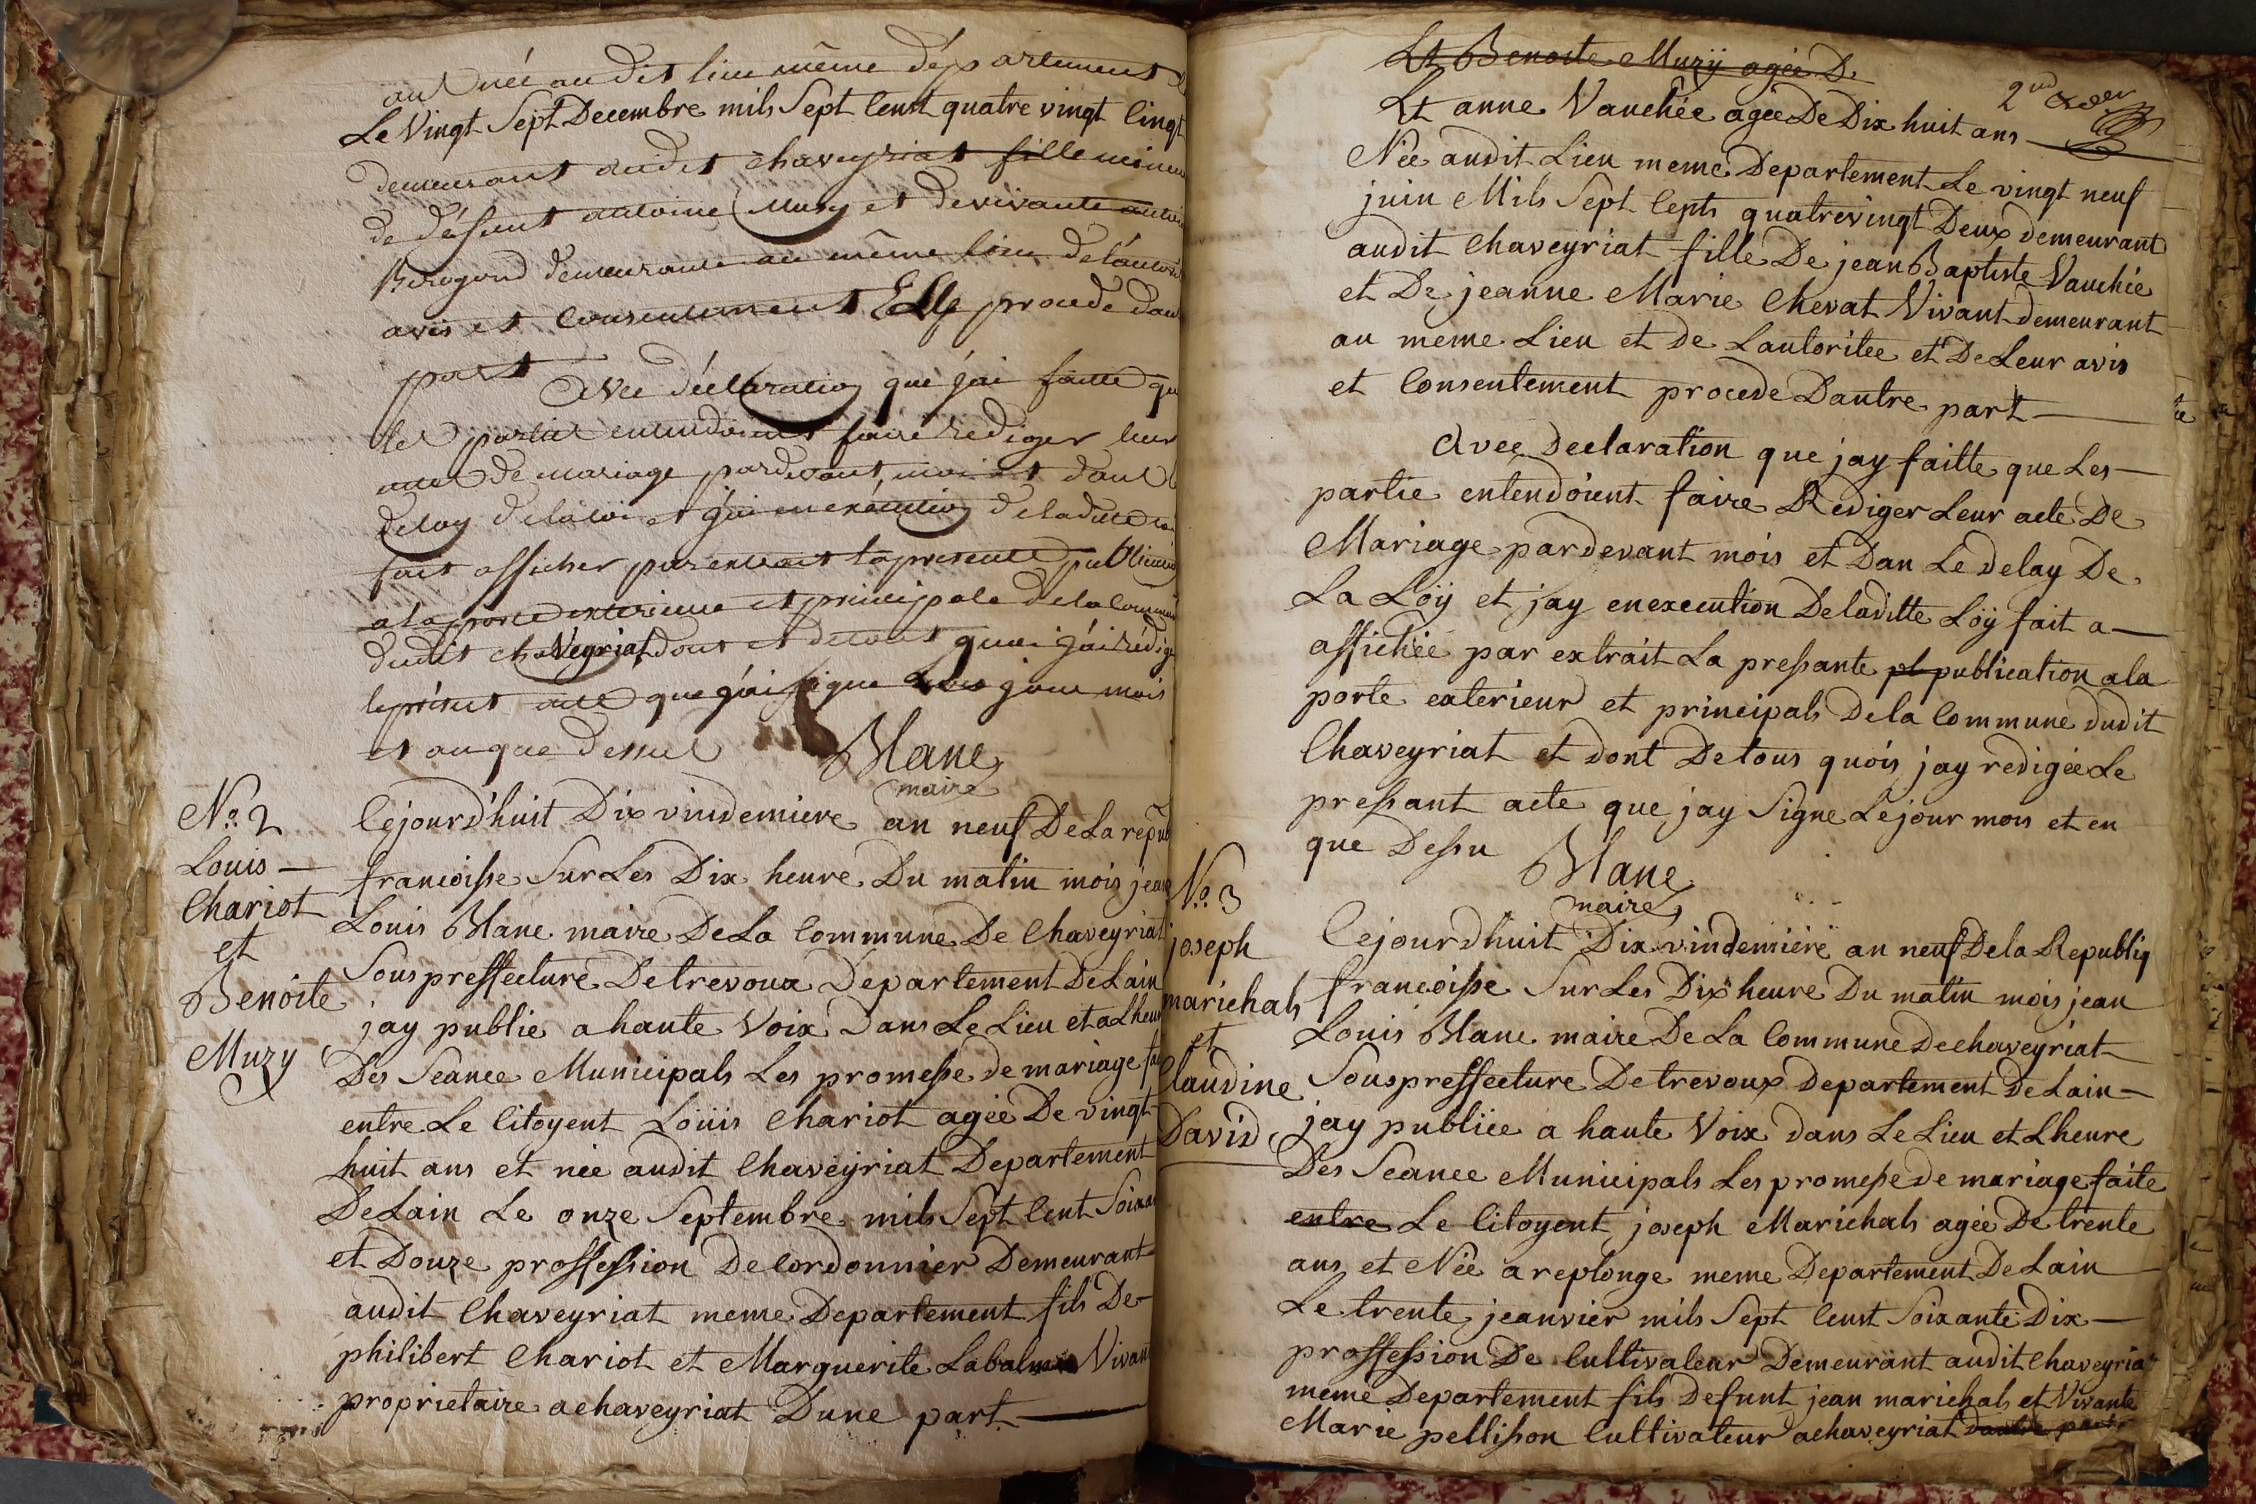 ans née audit lieu même département
Le Vingt Sept Decembre mils Sept Cent quatre vingt Cinqt
demeurant audit chaveyriat fille mineure
de défunt antoine Muzy et de vivante
Brogond demeurante au même lieu de
avis et Consentement Elle procede dau
part
Avec déclaration que j'ai faitte qu
les parties entendoient faire rédiger leur
acte de mariage pardevant moi et dans
delay delaloi et j'ai en exécution deladite
fait afficher par extrait la presente
a la porte exterieure et principale de la
dudit chaVeyriat dont et de tout quoi j'ai
le présent acte que j'ai signé les jour mois
et an que dessus
Blanc
maire
No. 2
Louis
Chariot
et
Benoite
Muzy
Cejourd'huit Dix vindemiere an neuf De La repub
francoisse Sur Les Dix heure Du matin mois jean
Louis Blanc maire De La Commune De Chaveyriat
Sous pressecture De trevoux Departement De Lain
jay publie a haute Voix Dans Le Lieu et a Lheur
Des Seance Municipals Les promesse de mariage
entre Le Citoyent Loüis Chariot agée De vingt
huit ans et née audit Chaveyriat Departement
De Lain Le onze Septembre mils Sept Cent Soixan
et Douze proffession De Cordonnier Demeurant
audit Chaveyriat meme Departement fils De
philibert Chariot et Marguerite Vivant
proprietaire a chaveyriat Dune part
Et Benoite Muzÿ agée D.
2nd
Et anne Vauchée agée De Dix huit ans
Née audit Lieu meme Departement Le vingt neuf
juin Mils Sept Cepts quatrevingt Deux demeurant
audit Chaveyriat fille De jean Baptiste Vauchée
et De jeanne Marie Chevat Vivant demeurant
au meme Lieu et de Lautoritée et De Leur avis
et Consentement procede Dautre part
Avec Declaration que jay faitte que Les
partie entendoient faire Rediger Leur acte De
Mariage pardevant mois et Dan Le delay De
La Loÿ et jay en execution De laditte Loÿ fait a
affichée par extrait La pressante pl publication a la
porte exterieur et principals De la Commune dudit
Chaveyriat et dont De tous quois jay redigée Le
pressant acte que jay Signe Le jour mois et en
que Dessu
Blanc
maire
No. 3
joseph
marichals
et
Claudine
David
Cejourdhuit Dix vindemiere an neuf De la Republiq
francoisse Sur Les Dix heure Du matin mois jean
Louis Blanc maire De La Commune De chaveyriat
Sous pressecture De trevoux Departement De Lain
jay publiée a haute Voix dans Le Lieu et Lheure
Des Seance Municipals Les promesse de mariage faite
entre Le Citoyent joseph Marichals agée De trente
ans et Née a replonge meme Departement De Lain
Le trente jeanvier mils Sept Cent Soixante Dix
proffession De Cultivateur Demeurant audit chaveyriat
meme Departement fils Defunt jean marichals et Vivante
Marie pellisson Cultivateur a chaveyriat dautre part